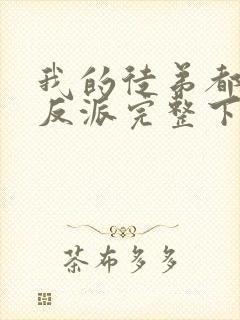 我的徒弟都
反派完整下
茶布多多